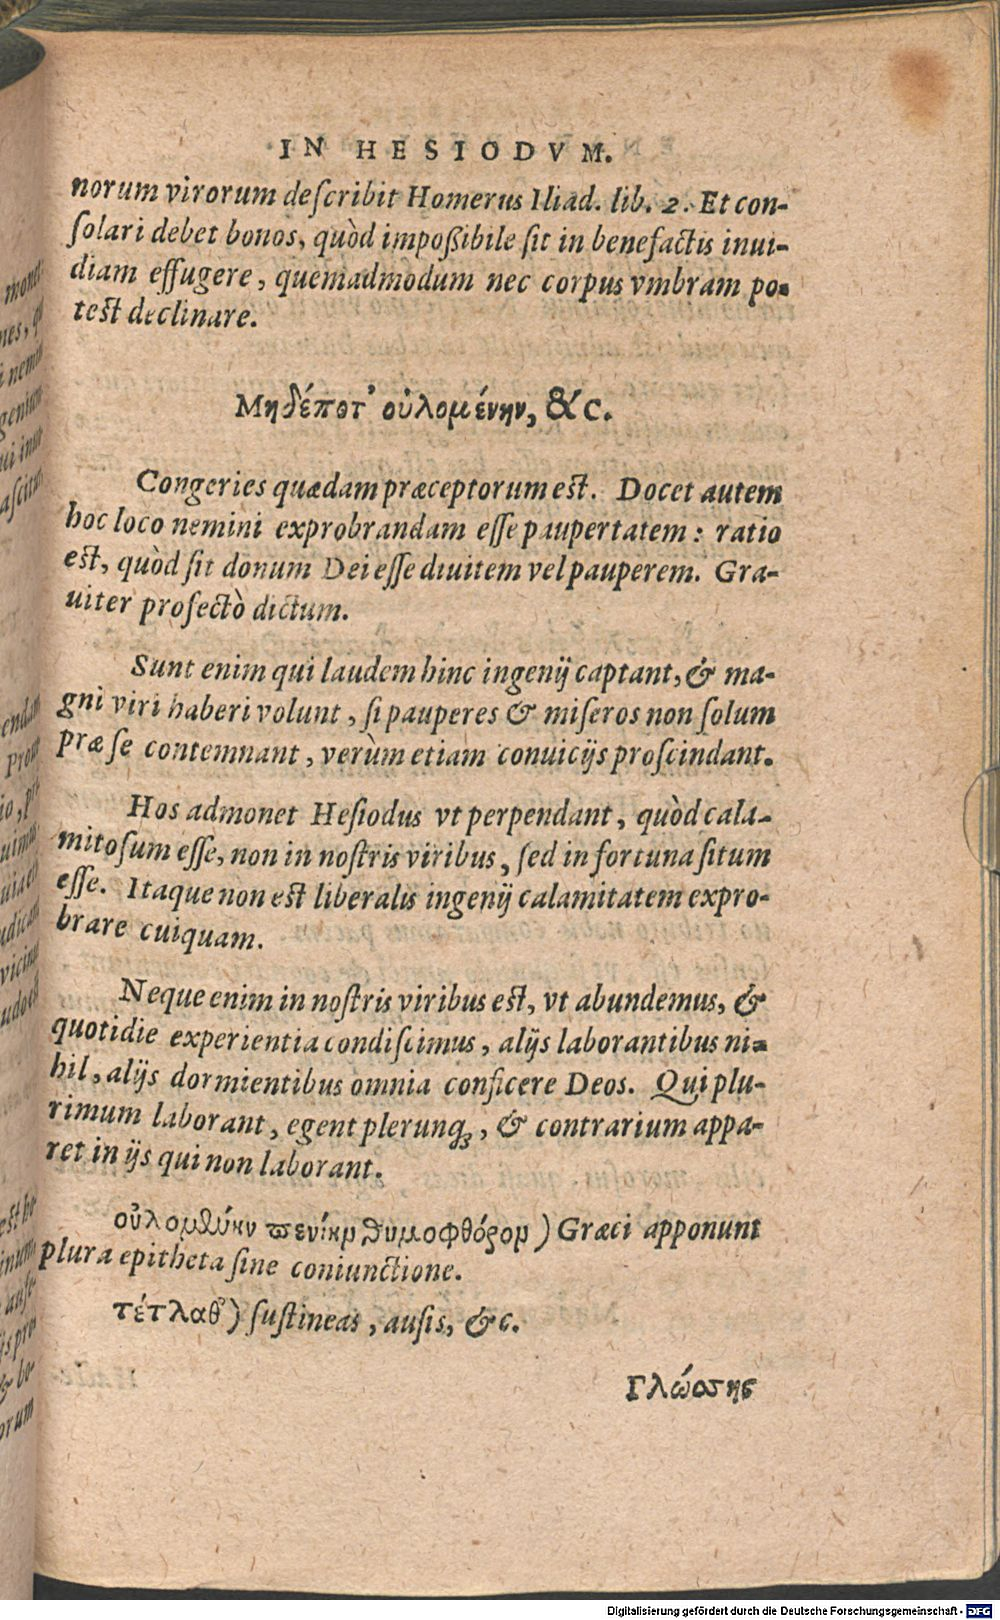 IN HESIODVM.
norum virorum deſcribit Homerus Iliad. lib. 2. Et con-
ſolari debet bonos, quòd impoßibile ſit in benefactis inui-
diam effugere, quemadmòdum nec corpus vmbram po-
test declinare.
Μηδέποτ' οὐλομένην, &c.
Congeries quædam præceptorum est. Docet autem
hoc loco nemini exprobrandam eſſe paupertatem: ratio
est, quòd ſit donum Dei eſſe diuitem vel pauperem. Gra-
uiter profectò dictum.
Sunt enim qui laudem hinc ingenij captant, & ma-
gni viri haberi volunt, ſi pauperes & miſeros non ſolum
præ ſe contemnant, verùm etiam conuicijs proſcindant.
Hos admonet Heſiodus vt perpendant, quòd cala-
mitoſum eſſe, non in noſtris viribus, ſed in fortuna ſitum
eſſe. Itaque non est liberalis ingenij calamitatem expro-
brare cuiquam.
Neque enim in noſtris viribus est, vt abundemus, &
quotidie experientia condiſcimus, alijs laborantibus ni-
hil, alijs dormientibus omnia conficere Deos. Qui plu-
rimum laborant, egent plerunq;, & contrarium appa-
ret in ijs qui non laborant.
οὐλομένην πενίην θυμοφθόρον) Græci apponunt
plura epitheta ſine coniunctione.
τέτλαθ') ſuſtineas, auſis, &c.
Γλώσσης
Digitalisierung gefördert durch die Deutsche Forschungsgemeinschaft - DFG